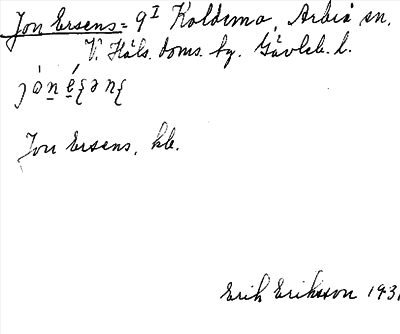 Jon Ersens = 9 I Koldemo, Arbrå sn.
V. Häls. doms. hg. Gävleb. l.
Jon Ersens, hb.
Erik Eriksson 193